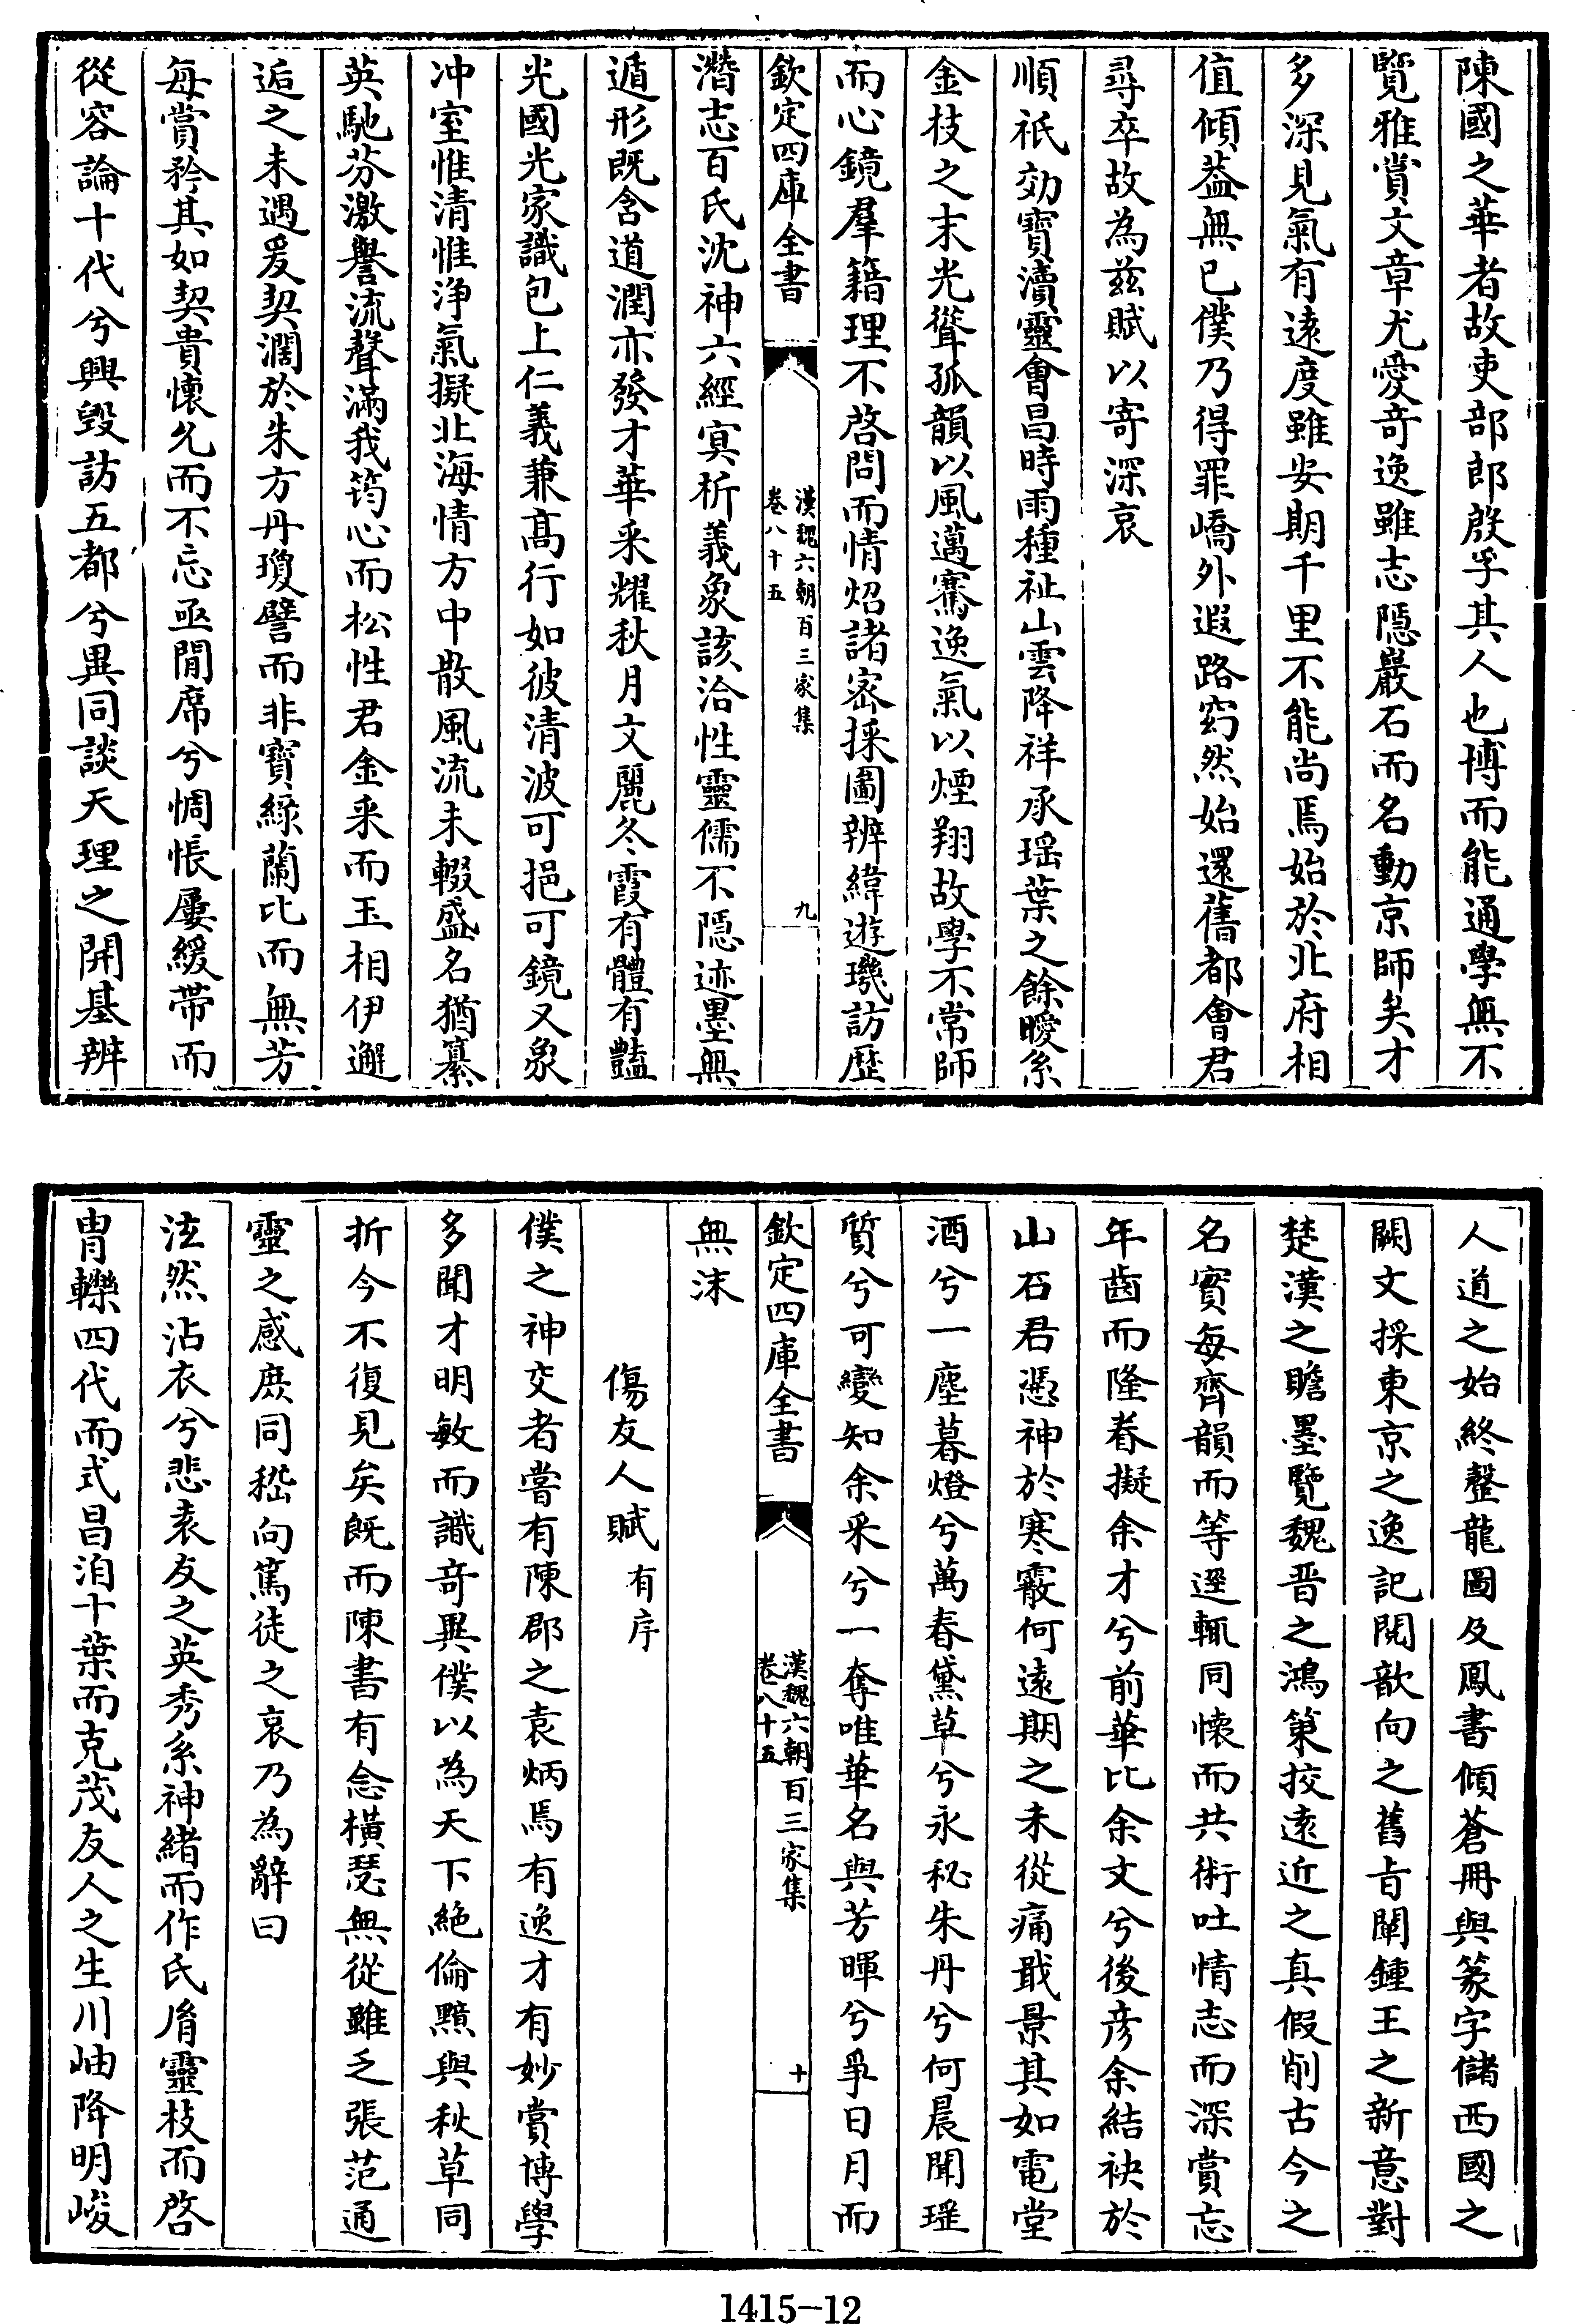 陳國之華者故吏部郎殷孚其人也博而能通學無不
覽雅賞文章尤愛奇逸雖志隱巖石而名動京師矣才
多深見氣有遠度雖安期千里不能尚焉始於北府相
值傾葢無已僕乃得罪嶠外遐路窈然始還舊都會君
尋卒故為兹賦以寄深哀
順祇効寳瀆靈會昌時雨種祉山雲降祥承瑶葉之餘曖系
金枝之末光聳孤韻以風邁騫逸氣以煙翔故學不常師
而心鏡羣籍理不啓問而情炤諸宻採圖辨緯遊璣訪歷
欽定四庫全書
漢魏六朝百三家集
卷八十五
九
潛志百氏沈神六經㝠析義象該洽性靈儒不隱迹墨無
遁形既含道潤亦發才華采耀秋月文麗冬霞有體有豔
光國光家識包上仁義兼髙行如彼清波可挹可鏡又象
冲室惟清惟浄氣擬北海情方中散風流未輟盛名猶纂
英馳芬激譽流聲滿我筠心而松性君金采而玉相伊邂
逅之未遇爰契濶於朱方丹瓊譬而非寳緑蘭比而無芳
每賞矜其如契貴懷允而不忘亟閒席兮惆悵屢緩帶而
從容論十代兮興毁訪五都兮異同談天理之開基辨
人道之始終蓥龍圖及鳳書傾蒼冊與篆字儲西國之
闕文採東京之逸記閲歆向之舊旨闡鍾王之新意對
楚漢之瞻墨覽魏晋之鴻筞挍逺近之真假削古今之
名實每齊韻而等逕輒同懷而共術吐情志而深賞忘
年齒而隆眷擬余才兮前華比余文兮後彦余結袂於
山石君憑神於寒霰何遠期之未從痛戢景其如電堂
酒兮一塵暮燈兮萬春黛草兮永秘朱丹兮何晨聞瑶
質兮可變知余采兮一奪唯華名與芳暉兮爭日月而
欽定四庫全書
漢魏六朝百三家集
卷八十五
十
無沫
傷友人賦有序
僕之神交者嘗有陳郡之袁炳焉有逸才有妙賞博學
多聞才明敏而識竒異僕以為天下絶倫黯與秋草同
折今不復見矣既而陳書有念橫瑟無從雖乏張范通
靈之感庻同嵇向篤徒之哀乃為辭曰
泫然沾衣兮悲袁友之英秀系神緒而作氏胤靈枝而啓
胄轢四代而式昌洎十葉而克茂友人之生川岫降明峻
1415—12